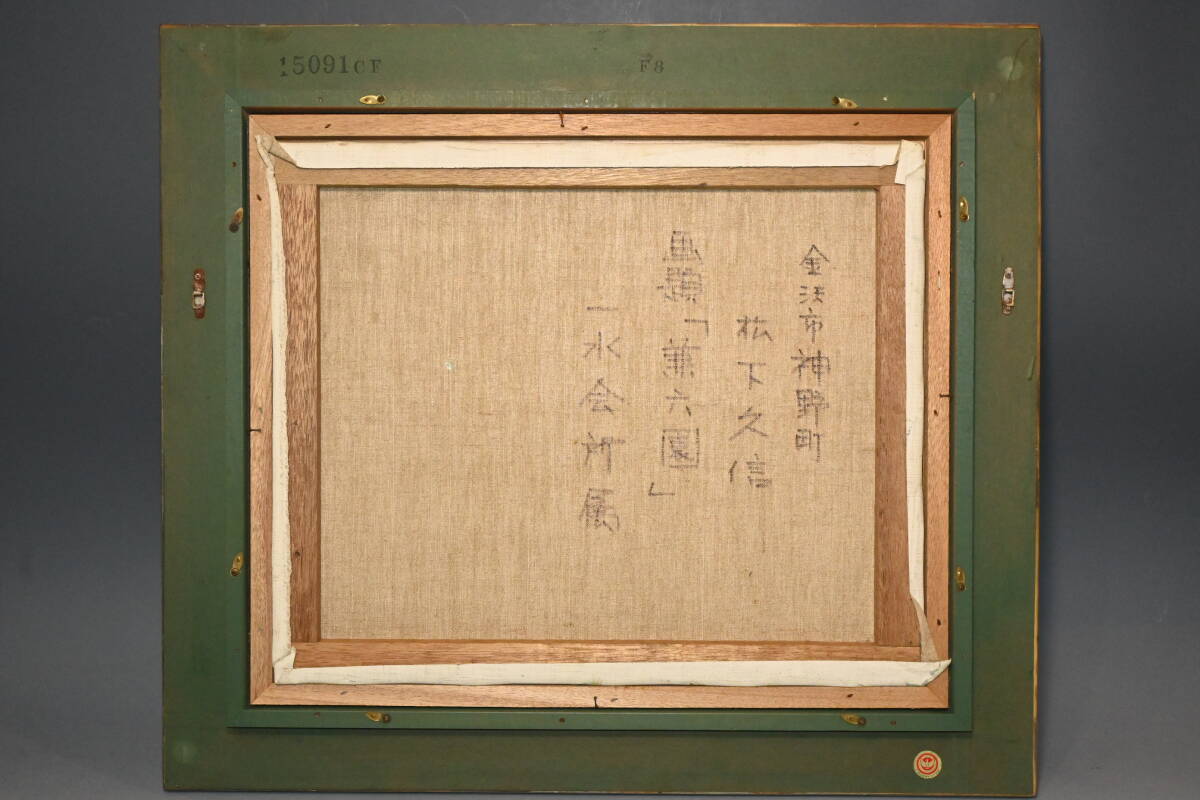 15091CF
F8
金沢市神野町
松下久信
画題「兼六園」
一水会所属